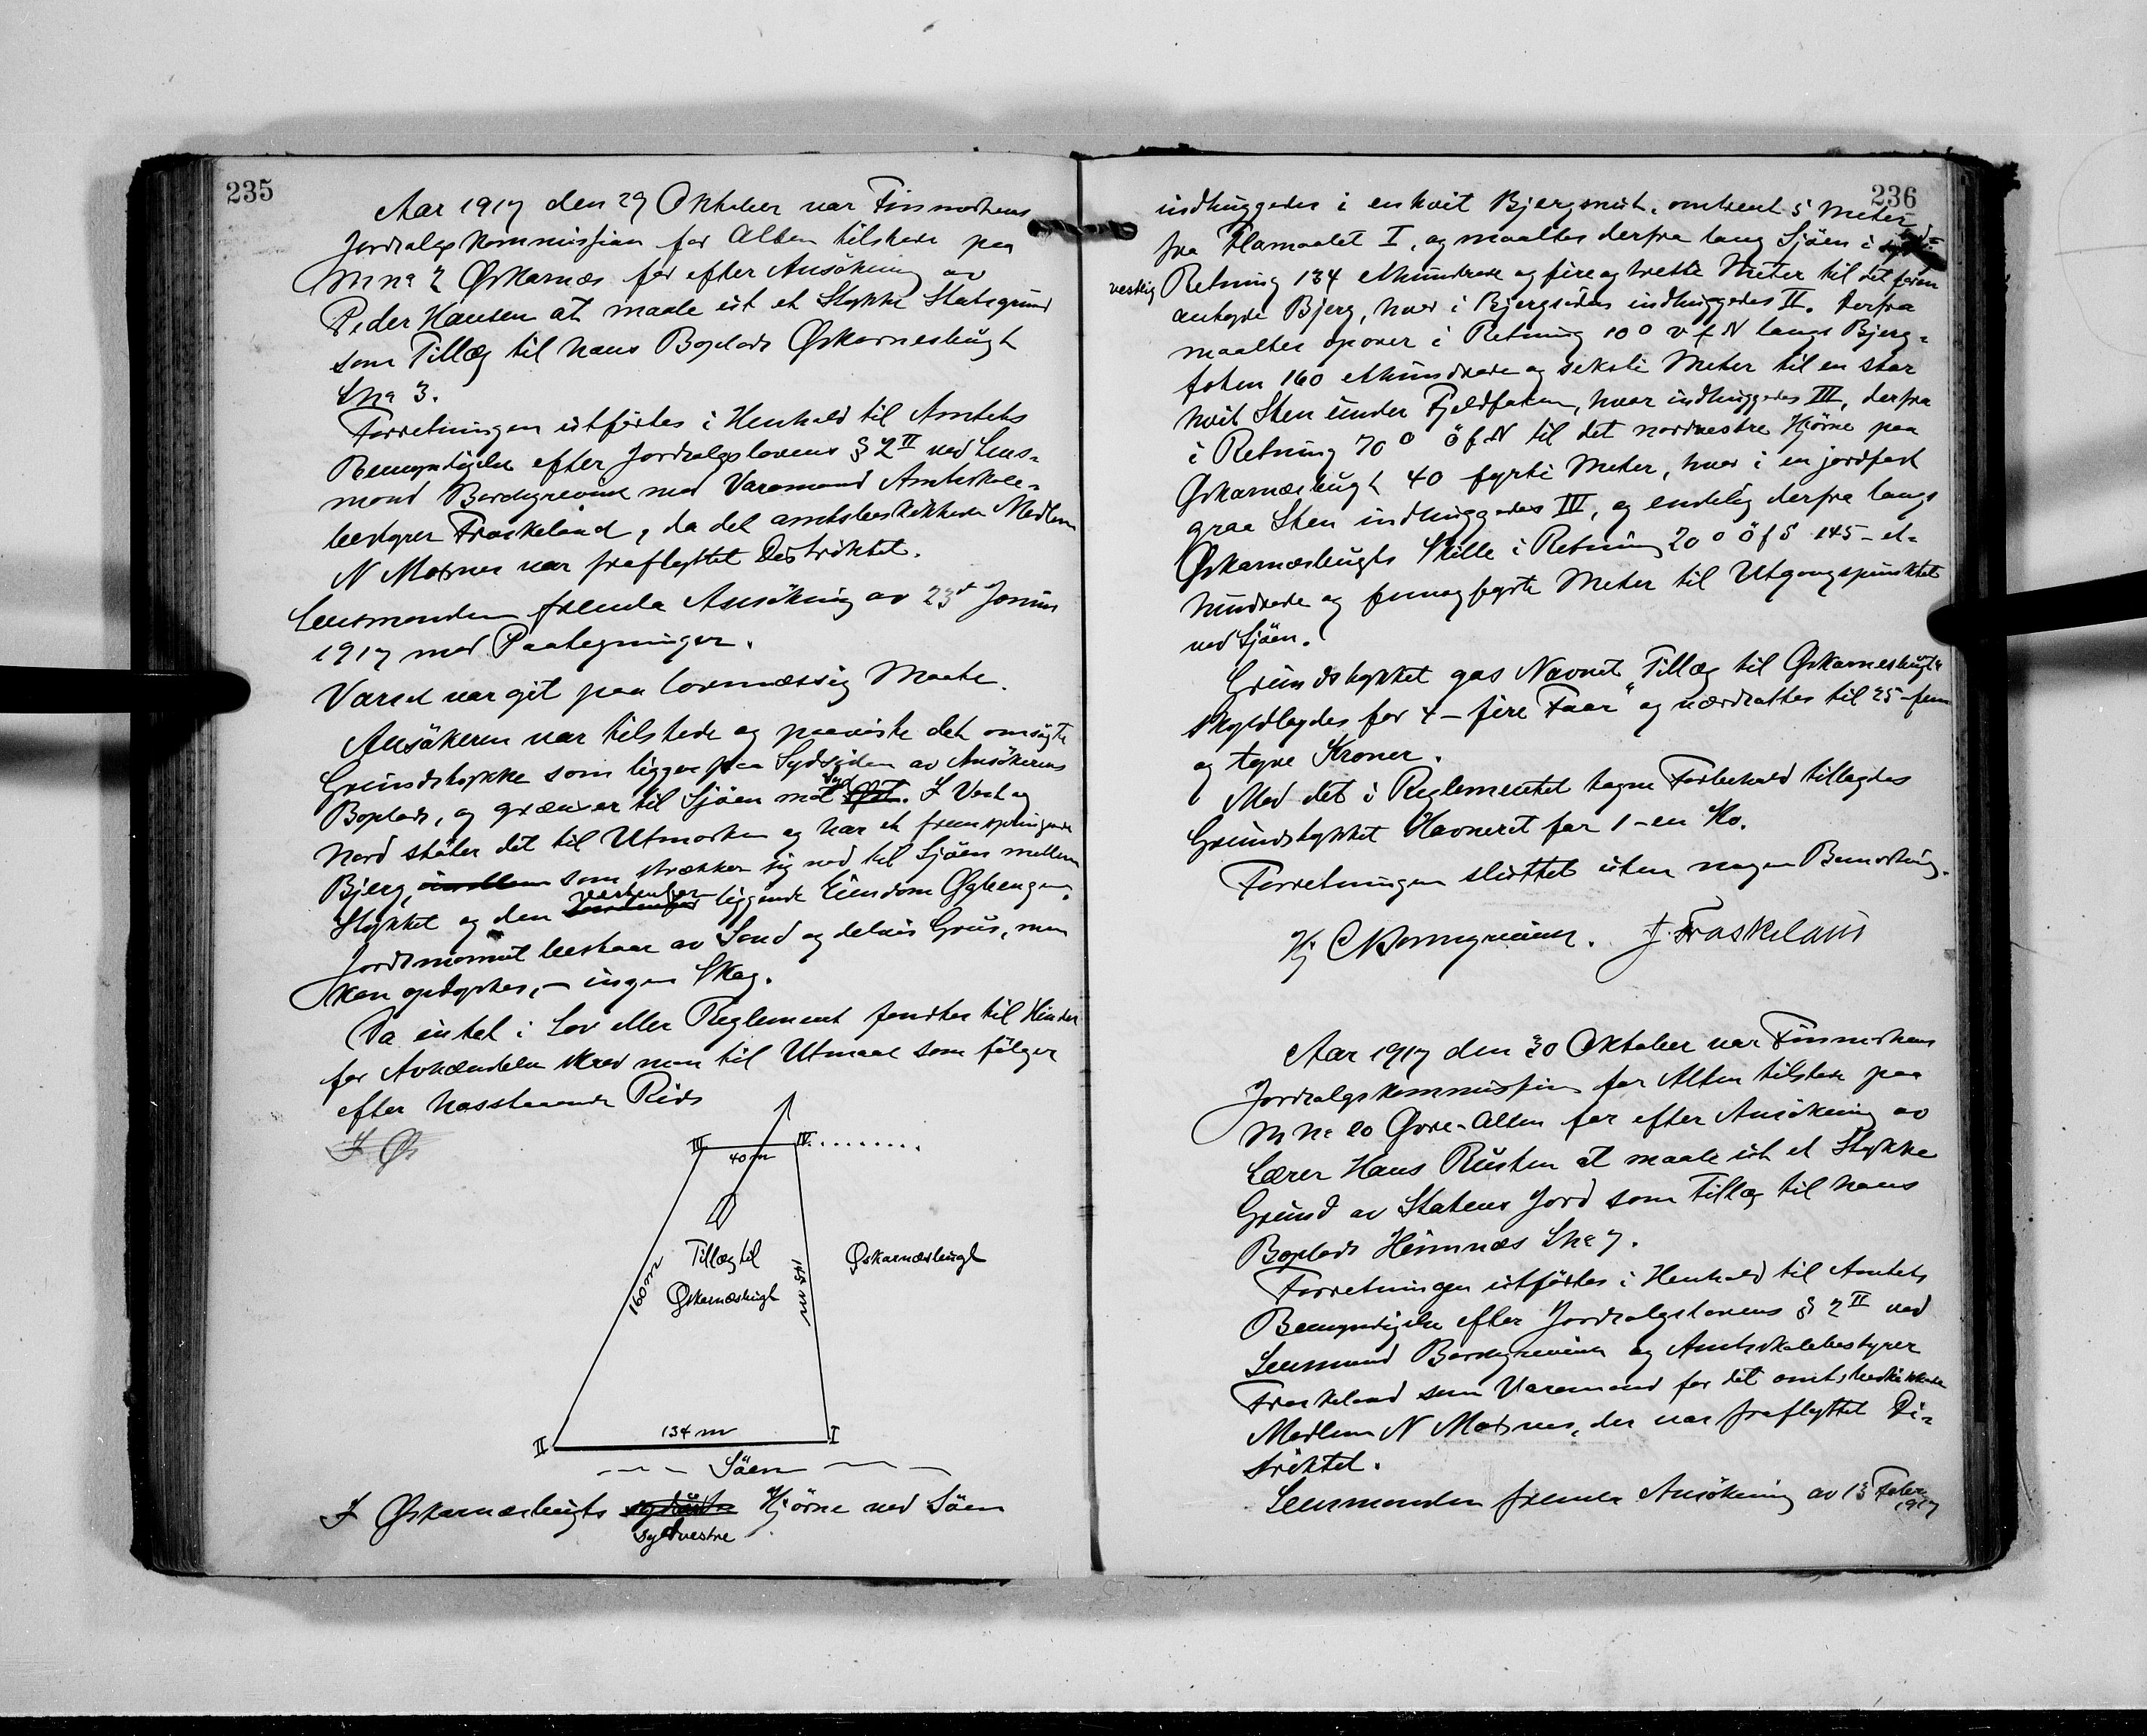 235
Aar 1917 den 29 Oktober var Finmarkens
Jordsalgskommission for Alten tilstede paa
M no 2 Øskarnæs for efter Ansökning av
Peder Hansen at maale ut et Stykke Statsgrund
som Tillæg til hans Boplads Øskarnesbugt
L no 3.
Forretningen utförtes i Henhold til Amtets
Bemyndigelse efter Jordsalgslovens § 2 II ved Lens-
mand Bordegrevink med Varamand Amtskole-
bestyrer Fraskeland, da det amtsbeskikkede Medlem
N Matsnes var fraflyttet Distriktet.
Lensmanden fremla Ansökning av 23d Juni
1917 med Paategninger.
Varsel var git paa lovmæssig Maate.
Ansökeren var tilstede og paaviste det omsögte
Grundstykke som ligger paa Sydsiden av Ansökerens
Boplads, og grænser til Sjöen mot Syd Øst. I Vest og
Nord stöter det til Utmarken og har et fremspringende
Bjerg, imellem som strækker sig ned til Sjöen mellem
Stykket og den vestenfor liggende Eiendom
Jordsmonnet bestaar av Sand og delvis Grus, men
kan opdyrkes, – ingen Skog.
Da intet i Lov eller Reglement fandtes til Hinder
for Avhændelse skred man til Utmaal som fölger
efter hosstaaende Rids
I Øs
III IV
40 m
160 m
Tillæg til
Øskarnæsbugt
145 m
Øskarnæsbugt
134 m
II I
Söen
I Øskarnæsbugts sydöstre Hjörne ved Söen
sydvestre
236
indhuggedes i en hvit Bjergnut, omtrent 5 Meter
fra Flomaalet I, og maaltes derfra lang Sjöen i
vestlig Retning 134 ethundrede og fire og tretti Meter til det foran
antydde Bjerg, hvor i Bjergsiden indhuggedes II. Derfra
maaltes opover i Retning 10° v f N langs Bjerg-
foten 160 ethundrede og seksti Meter til en stor
hvit Sten under Fjeldfoten, hvor indhuggedes III, derfra
i Retning 70° ö f N til det nordvestre Hjörne paa
Øskarnæsbugt 40 fyrti Meter, hvor i en jordfast
graa Sten indhuggedes IV, og endelig derfra langs
Øskarnæsbugts Skille i Retning 20° ö f S 145 – et-
hundrede og femogfyrti Meter til Utgangspunktet
ved Sjöen.
Grundstykket gas Navnet „Tillæg til Øskarnesbugt"
skyldlagdes for 4 – fire Føar" og værdsattes til 25 – fem
og tyve Kroner.
Med det i Reglementet tagne Forbehold tillagdes
Grundstykket Havneret for 1 – en Ko.
Forretningen sluttet uten nogen Bemerkning.
J. Fraskeland
Aar 1917 den 30 Oktober var Finmarkens
Jordsalgskommission for Alten tilstede paa
M no 20 Øvre-Alten for efter Ansökning av
Lærer Hans Rusten at maale ut et Stykke
Grund av Statens Jord som Tillæg til hans
Boplads Heimnæs L no 7.
Forretningen utförtes i Henhold til Amtets
Bemyndigelse efter Jordsalgslovens § 2 II ved
Lensmand Bordegrevink og Amtsskolebestyrer
Fraskeland som Varamand for det amtsbeskikkede
Medlem N Matsnes, der var fraflyttet Di-
striktet.
Lensmanden fremla Ansökning av 13 Febr
1917